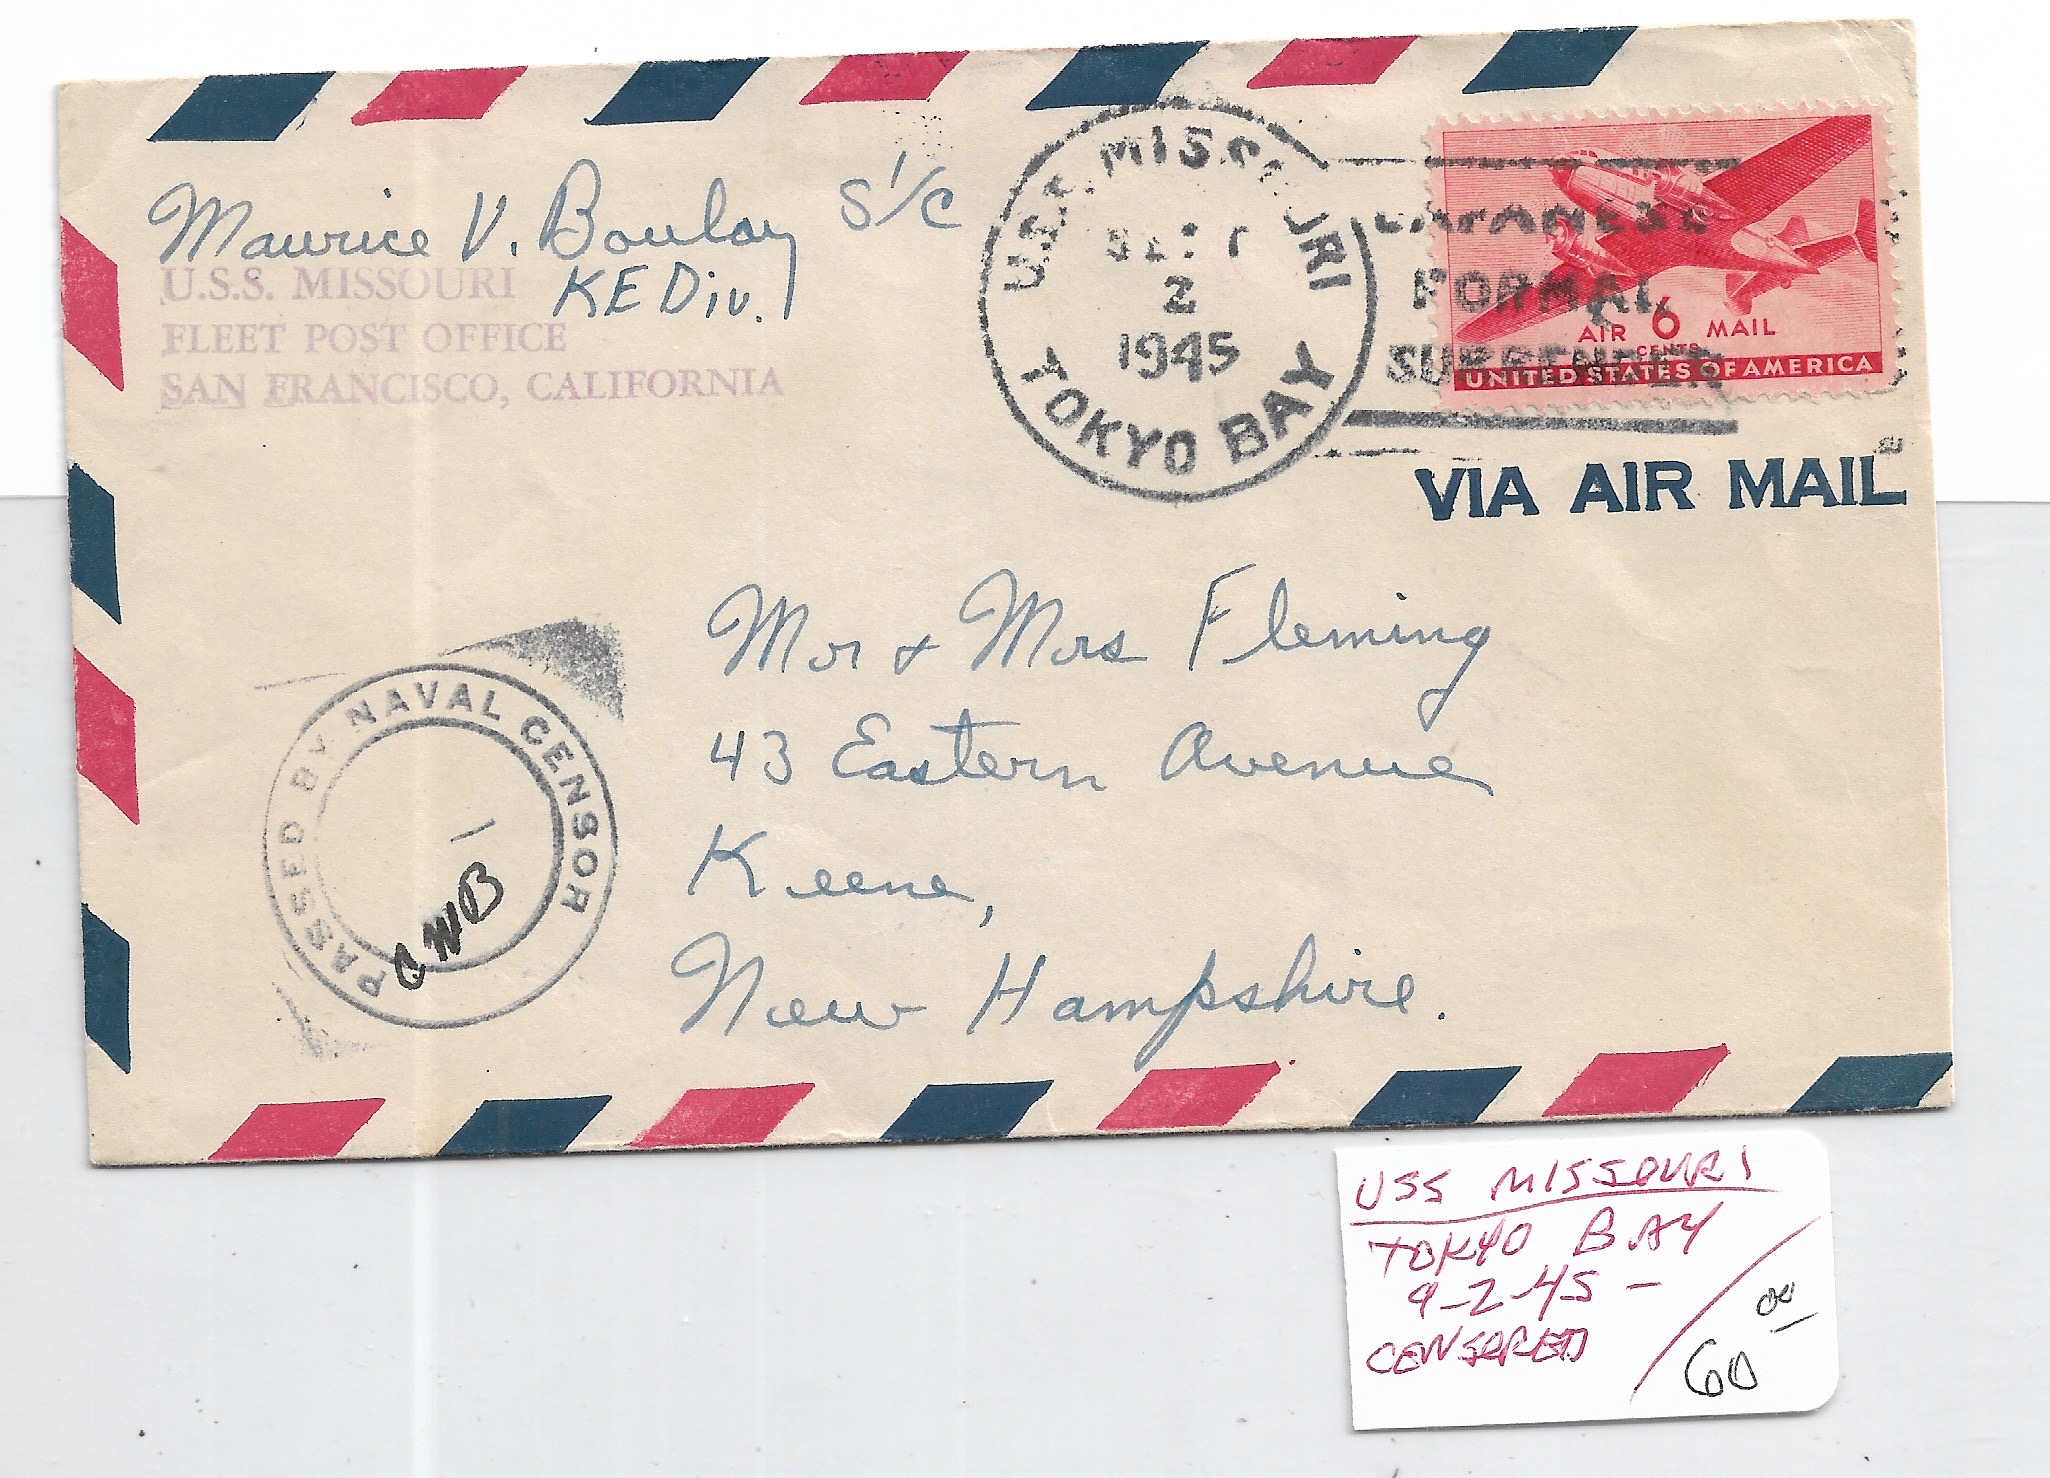 Maurice V. Boulay S1/C
KE Div.
U.S.S. MISSOURI
FLEET POST OFFICE
SAN FRANCISCO, CALIFORNIA
U.S.S. MISSOURI
SEPT
2
1945
TOKYO BAY
JAPANESE
FORMAL
SURRENDER
AIR 6 MAIL
CENTS
UNITED STATES OF AMERICA
VIA AIR MAIL
Mr & Mrs Fleming
43 Eastern Avenue
Keene,
New Hampshire.
PASSED BY NAVAL CENSOR
CWB
USS MISSOURI
TOKYO BAY
9-2-45 -
CENSORED
60 00